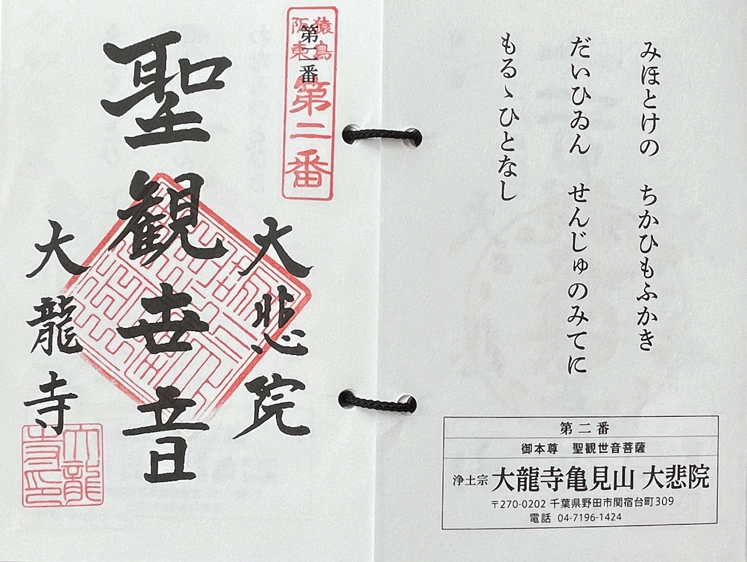 みほとけの　ちかひもふかき
だいひゐん　せんじゅのみてに
もるゝひとなし
第二番
御本尊　聖観世音菩薩
浄土宗 大龍寺亀見山 大悲院
〒270-0202 千葉県野田市関宿台町309
電話 04-7196-1424
猿島
阪東
第二番
第二番
大悲院
聖観世音
大龍寺
大龍
寺印